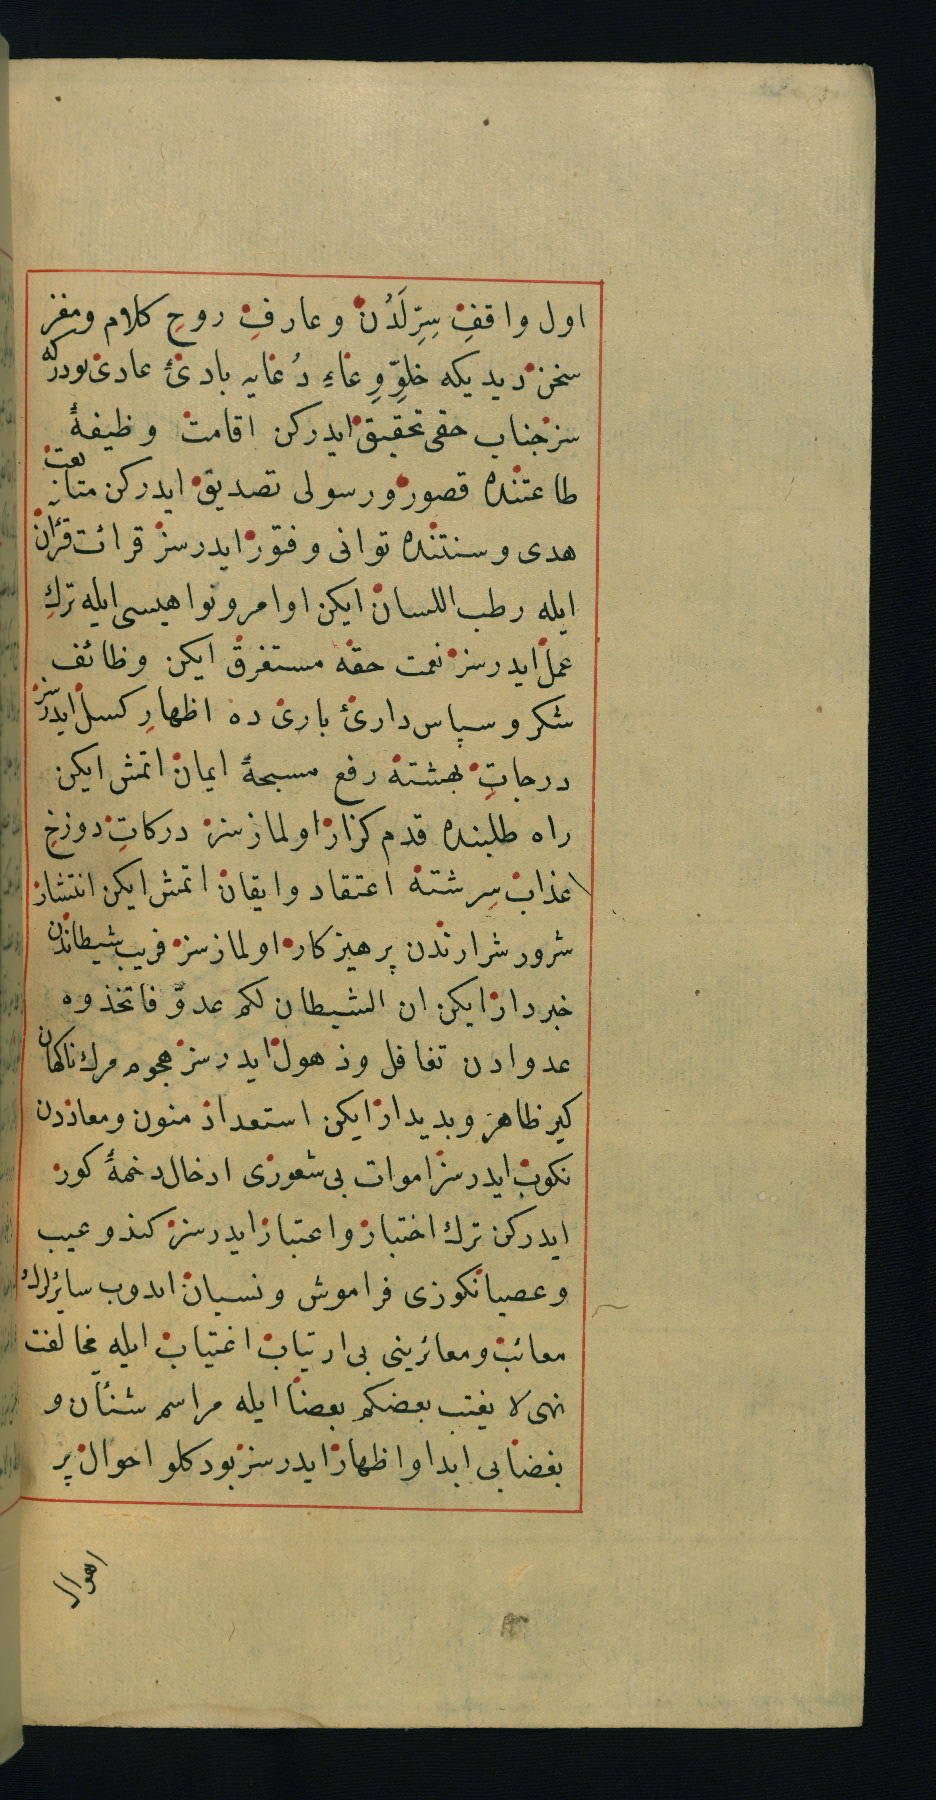 اول واقفِ سِرِّ لَدُن و عارفِ روحِ كلام ومغز
سخن ديديكه خلوِّ وِعاءِ دُعايه بادئ عادى بودركه
سز جناب حقى تحقيق ايدركن اقامت وظيفهٔ
طاعتنده قصور ورسولى تصديق ايدركن متابعت
هدى و سنتنده توانى و فتور ايدرسز قرائت قرآن
ايله رطب اللسان ايكن اوامر ونواهيسى ايله تركِ
عمل ايدرسز نعمت حقه مستغرق ايكن وظائف
شكر و سپاس دارئ بارى ده اظهارِ كسل ايدرسز
درجاتِ بهشته رفع مسبحهٔ ايمان اتمش ايكن
راه طلبنده قدم كزار اولمازسز دركاتِ دوزخِ
عذاب سِرشته اعتقاد وايقان اتمش ايكن انتشار
شرور شرارندن پرهيزكار اولمازسز فريب شيطاندن
خبردار ايكن ان الشيطان لكم عدوّ فاتخذوه
عدوادن تغافل وذهول ايدرسز هجوم مرك ناكهان
كير ظاهر وبديدار ايكن استعداد منون ومعاددن
نكوب ايدرسز اموات بى شعورى ادخال دخمهٔ كور
ايدركن ترك اختبار واعتبار ايدرسز كندو عيب
وعصيانكوزى فراموش ونسيان ايدوب سائرلرك
معائب ومعائرينى بى ارتياب اغتياب ايله مخالفت
نهى لا يغتب بعضكم بعضا ايله مراسم شنآن و
بغضايى ابدا واظهار ايدرسز بودكلو احوال پر
اهوال